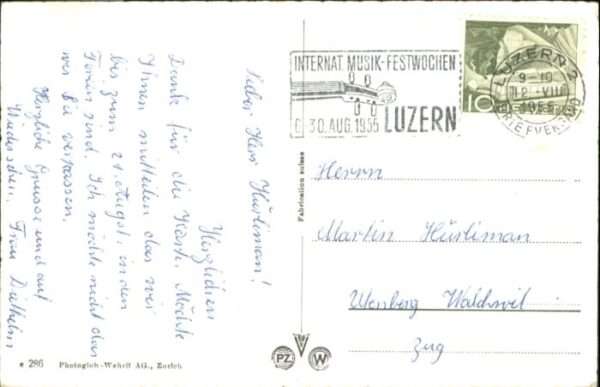 Lieber Herr Hürliman!
Herzlichen
Dank für die Karte. Möchte
Ihnen mitteilen das wir
bis zum 21. August, in den
Ferien sind. Ich möchte nicht das
wir Sie verpassen.
Herzliche Grüsse und auf
Wiedersehen. Frau Diethelm
e 286 Photoglob-Wehrli AG., Zürich
Fabrication suisse
INTERNAT MUSIK-FESTWOCHEN
30.AUG.1955 LUZERN
LUZERN 2
9-10
VIII
1955
BRIEFVERSAND
10
Herrn
Martin Hürliman
Utenberg Walchwil
Zug
PZ W